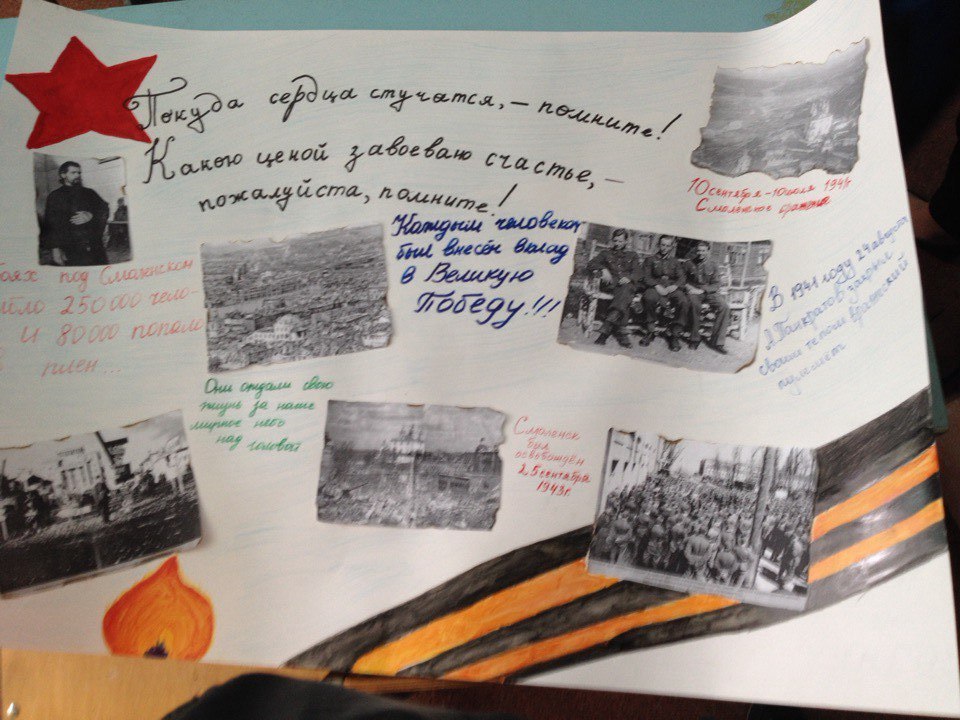 Покуда сердца стучатся, – помните!
Какою ценой завоеваю счастье, –
пожалуйста, помните!
10 сентября – 10 июля 1941г
Смоленское сражение
Каждым человеком
был внесён вклад
в Великую
Победу!!!
В 1941 году 24 августа
А. Панкратов закрыл
своим телом вражеский
пулемёт
боях под Смоленском
250 000 чело-
и 80000 попало
плен...
Они отдали свою
жизнь за наше
мирное небо
над головой
Смоленск
был
освобождён
25 сентября
1943г.